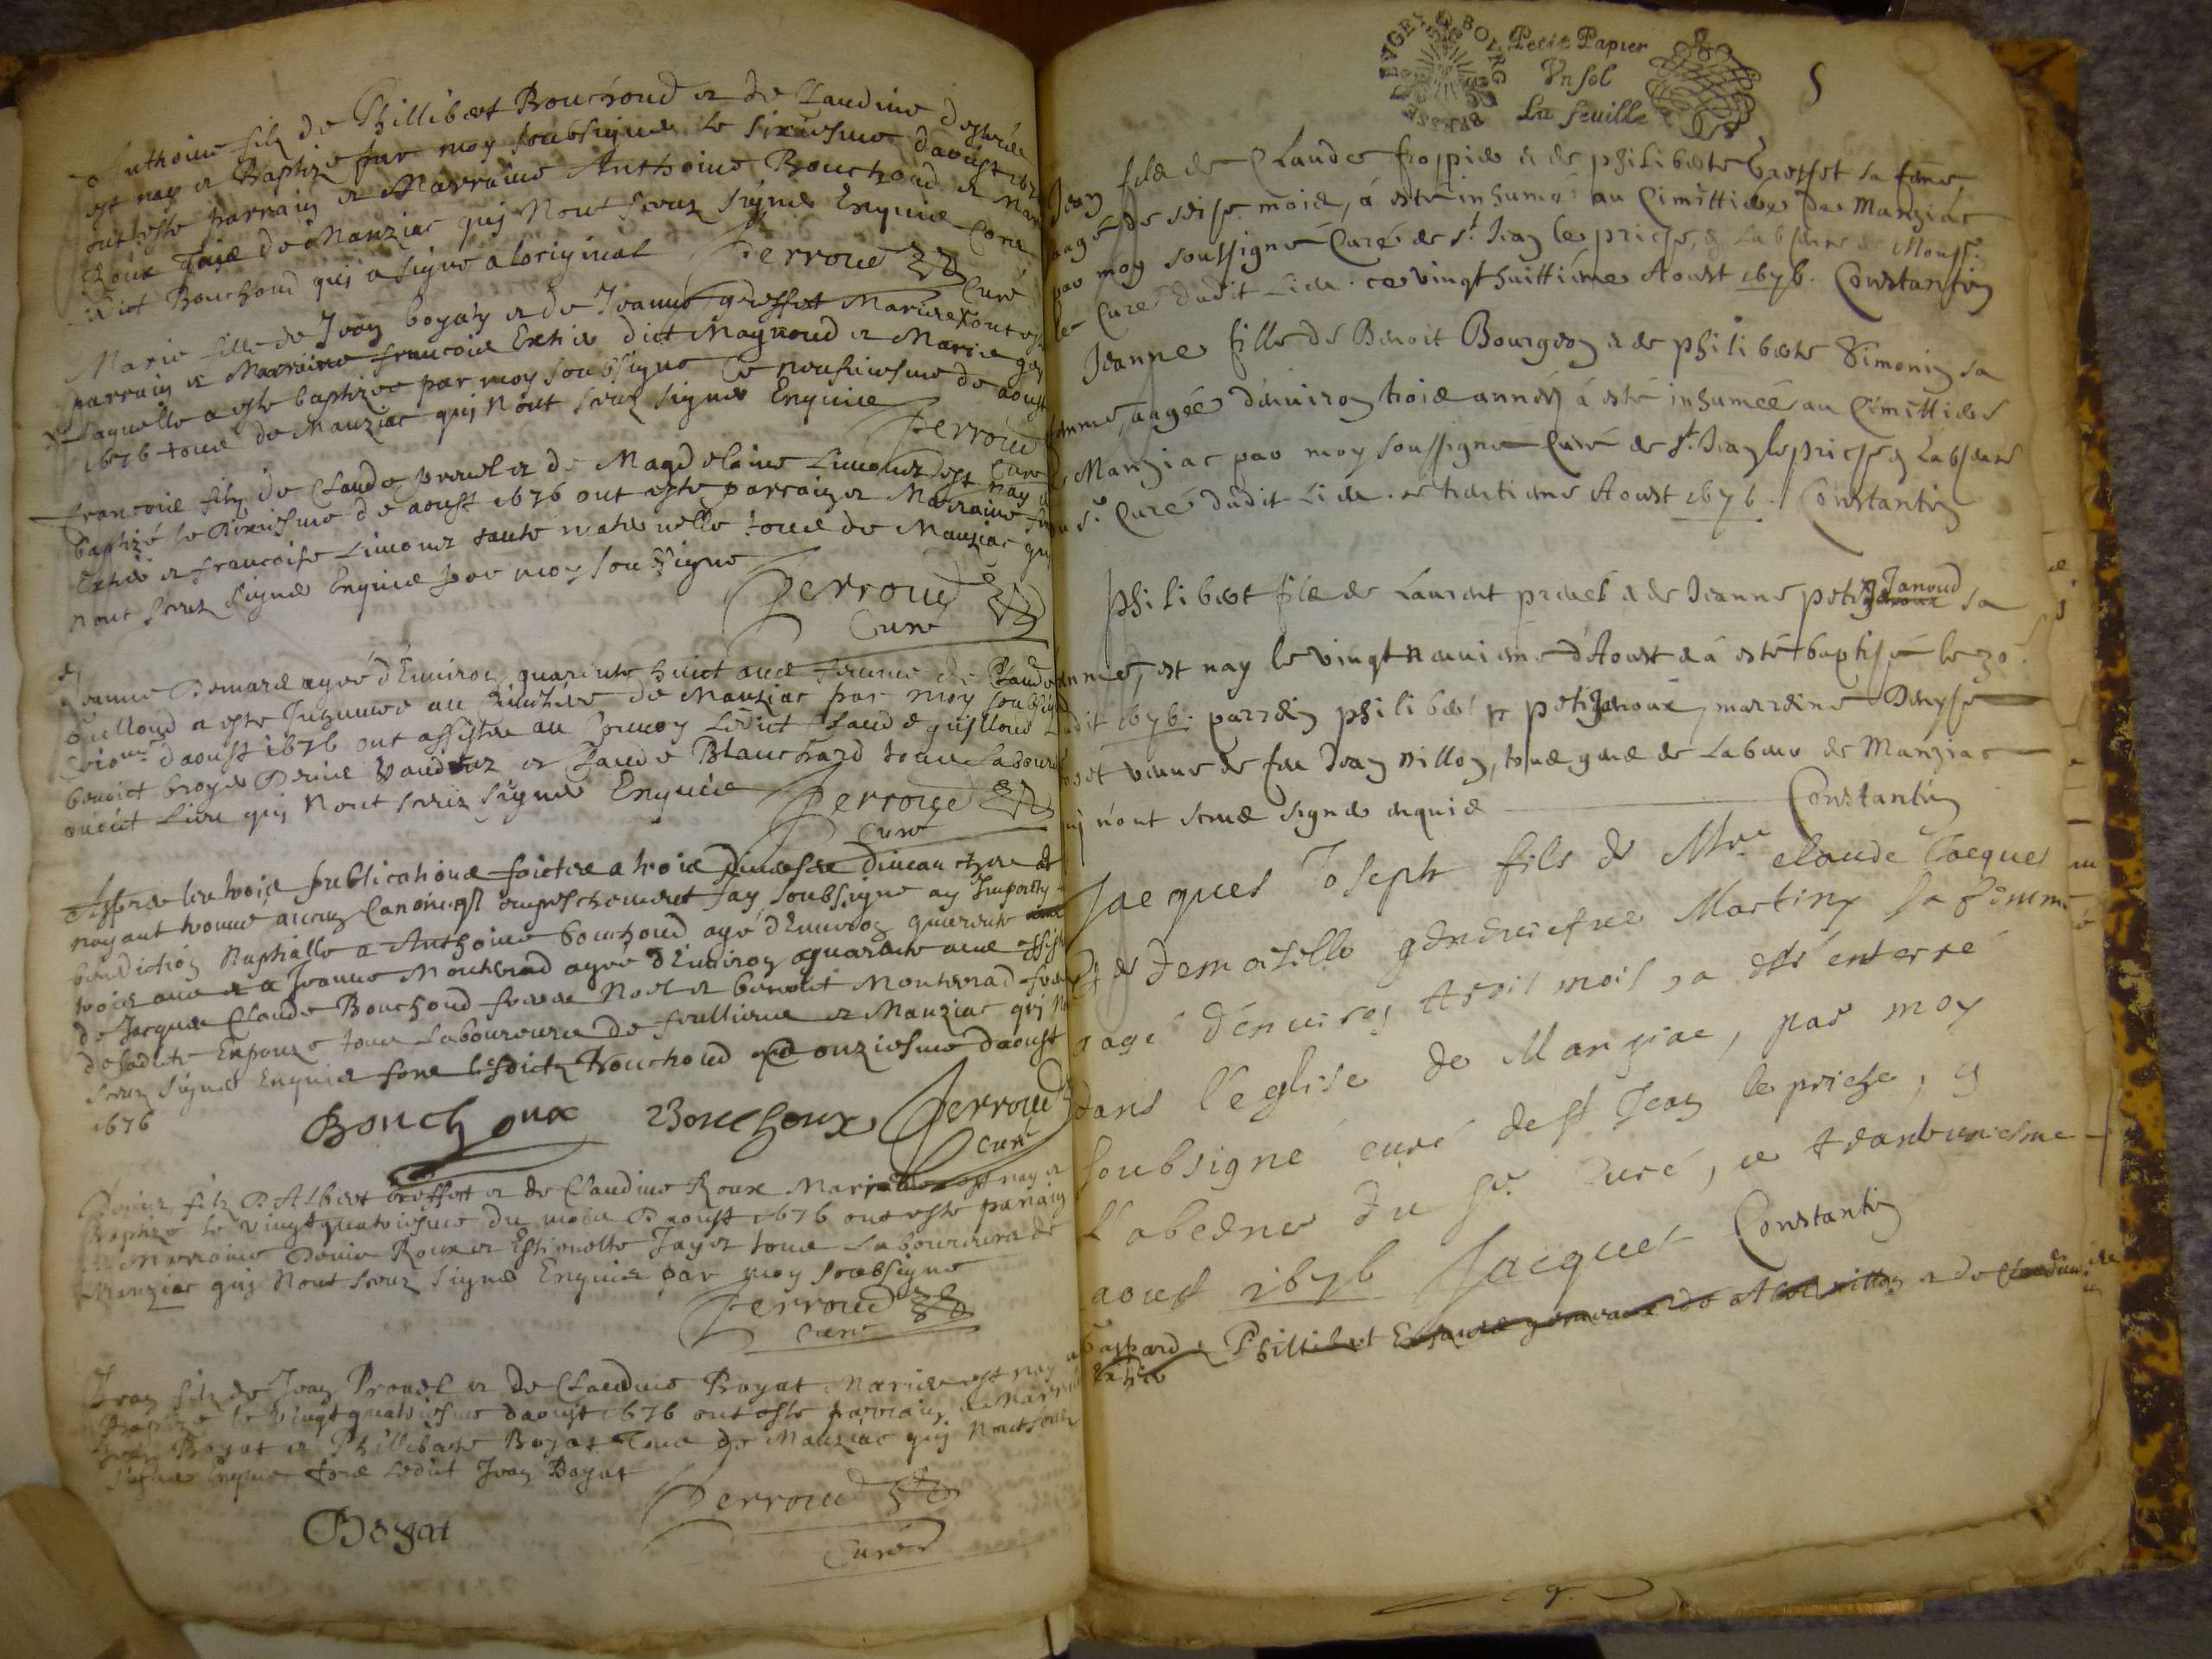 Anthoine filz de Phillibert Bouchoud et de Claudine
est nay et Baptizé par moy soubsigné le sixiesme daoust
ont esté parrain et Marraine Anthoine Bouchoud et
Roux Tous de Manziac quy Nont sceuz signé Enquis
dict Bouchoud quj a signé a loriginal Perroud
Curé
Marie fille de Jean boyat et de Jeanne Mariez ont esté
parrain et Marraine francois dict Maynoud et Marie
Laquelle a esté baptizée par moy soubsigné le neufiesme de aoust
1676 tous de Manziac quj Nont sceuz signé Enquis
Perroud
Curé
francois filz de Claude preuel et de Magdelaine Limonez est nay
baptizé le dixiesme de aoust 1676 ont esté parrain et Marraine
et francoise Limonez tante maternelle tous de Manziac quj
Nont sceuz signé Enquis par moy soubsigné
Perroud
Curé
Jeanne agée d'Environ quarante huict ans femme de Claude
Guilloud a esté Inhumée au Cimitière de Manziac par moy soubsigné
daoust 1676 ont assisté au Conuoy Ledict Claude guilloud
benoict broyer Denis et Claude Blanchard tous Laboureurs
dudict Lieu quj Nont sceuz signé Enquis Perroud
Curé
Apprez les trois publications faictes a trois diuerses dimanches
nayant trouué aucun Canonique empeschement Jay soubsigné ay Imparty
benediction Nuptialle a Anthoine bouchoud agé d'Enuiron quarante
trois ans et a Jeanne Monterad agée d'Enuiron quarante ans
de Jacques Claude Bouchoud freres Noel et benoict Monterad
de ladicte Espouze tous Laboureurs de feullieux et Manziac quj
sceuz signé Enquis fors lesdictz bouchoud ce onziesme daoust
1676
Bouchoux Bouchoux Perroud
Curé
Denis filz D'Albert broffet et de Claudine Roux Mariez est nay et
Baptizé le vingtquatriesme du mois D'aoust 1676 ont esté parrain
Marraine Denis Roux et Estienette Jayet tous Laboureurs de
Manziac quj Nont sceuz signé Enquis par moy soubsigné
Perroud
Curé
Jean filz de Jean Preuel et de Claudine Boyat Mariez est nay
Baptizé le vingtquatriesme daoust 1676 ont esté parrain et Marraine
Jean Boyat et Phillibarte Boyat Tous de Manziac quj Nont sceuz
signé Enquis fors Ledict Jean Boyat
Perroud
Boyat
Curé
BRESSE BVGEY BOVRG
Petit Papier
Vn sol
La feuille
5
Jean fils de Claude froppier et de philiberte broffet sa feme,
aagé de seise mois, à esté inhumé au Cimittière de Manziac
par moy soussigné Curé de st Jean le priche, en Labsence de Mons.r
le Curé dudit Lieu. ce vingt huittième Aoust 1676. Constantin
Jeanne fille de Benoit Bourgeon et de philiberte Simonin sa
femme, aagée d'enuiron trois années à esté inhumée au Cimittière
de Manziac par moy soussigné Curé de st. Jean le priche en Labsence
du sr. Curé dudit Lieu. ce trentieme Aoust 1676. Constantin
Philibert fils de Laurent preuel et de Jeanne petit Janoud sa
femme, est nay le vingt neuuieme d'Aoust et à esté baptisé le 30.
dit 1676. parrain philibert petitjanoux, marreine Denyse
veuue de feu Jean Nillon, tous gens de Labeur de Manziac
qui n'ont sceus signer enquis Constantin
Jacques Joseph fils de Mre. Claude Jacques
Et de demoiselle geneuiefue Martin sa femme
aagé d'enuiron trois mois, a esté enterré
dans l'eglise de Manziac, par moy
soubsigné curé de st Jean le priche, en
l'absence du sr. Curé, ce trantuniesme
aoust 1676 Jacquet Constantin
Gaspard Phillibert Nillon et de Claudine